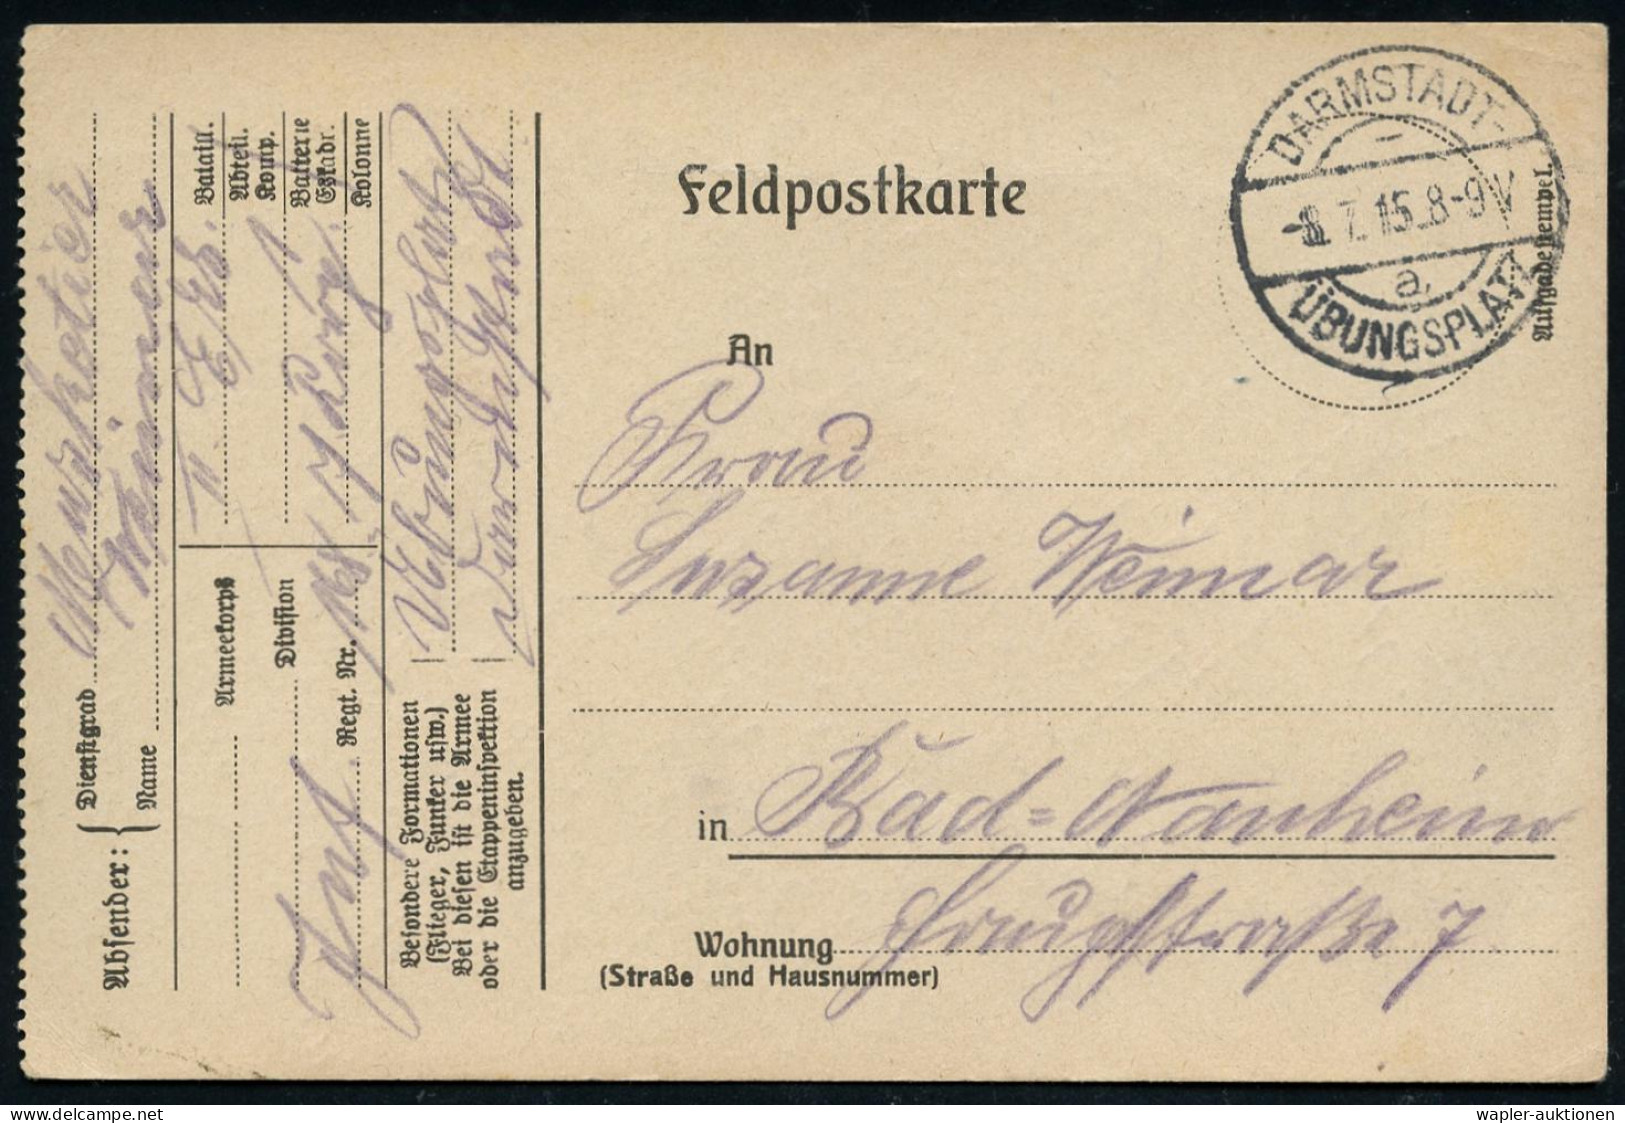 Feldpostkarte
DARMSTADT-
-8.7.15.8-9V
a
ÜBUNGSPLATZ
Aufgabestempel.
An
Frau
Suzanne Weimar
in Bad-Nauheim
Wohnung Hauptstraße 7
(Straße und Hausnummer)
Absender:
Dienstgrad Musketier
Name Weimar
Bataill.
Abteil.
Komp.
Batterie
Eskadr.
Kolonne
II.
Armeekorps
Division
Inf. Regt. Nr. 168
Besondere Formationen
(Flieger, Funker usw.)
Bei diesen ist die Armee
oder die Etappeninspektion
anzugeben.
Übungsplatz
Darmstadt
delcampe.net
wapler-auktionen